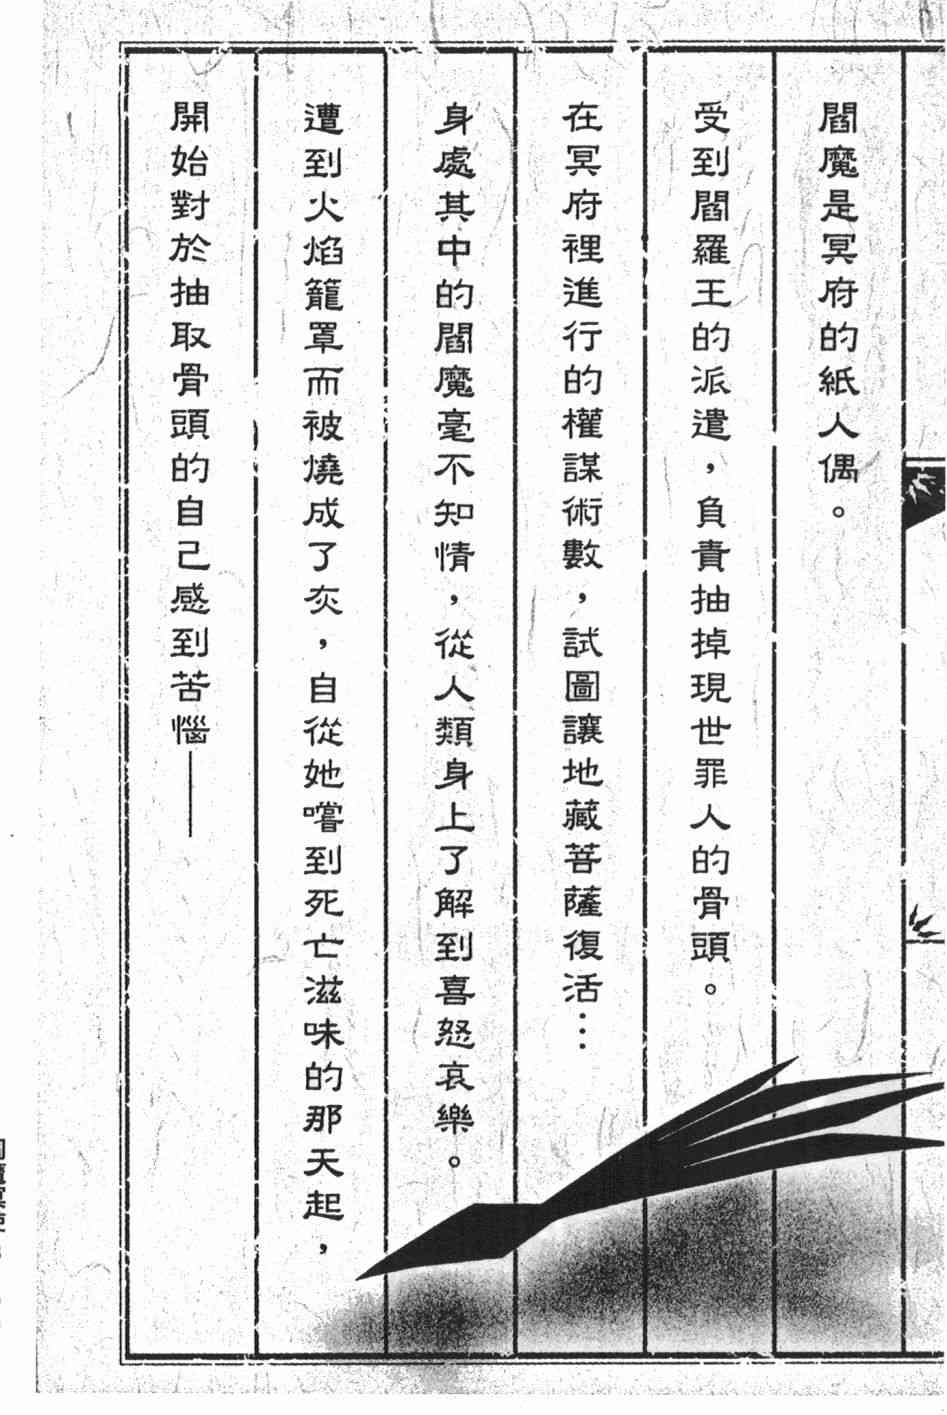 閻魔是冥府的紙人偶。
受到閻羅王的派遣，負責抽掉現世罪人的骨頭。
在冥府裡進行的權謀術數，試圖讓地藏菩薩復活…
身處其中的閻魔毫不知情，從人類身上了解到喜怒哀樂。
遭到火焰籠罩而被燒成了灰，自從她嚐到死亡滋味的那天起，
開始對於抽取骨頭的自己感到苦惱——